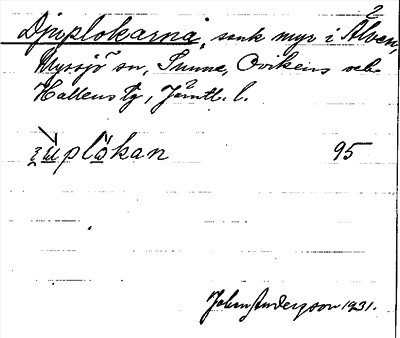 Djuplokarna, sank myr i Åsen,
Myssjö sn, Sunne, Ovikens och
Hallens tg, Jämtl. l.
zu̲plö̲kan 95
John Andersson 1931.